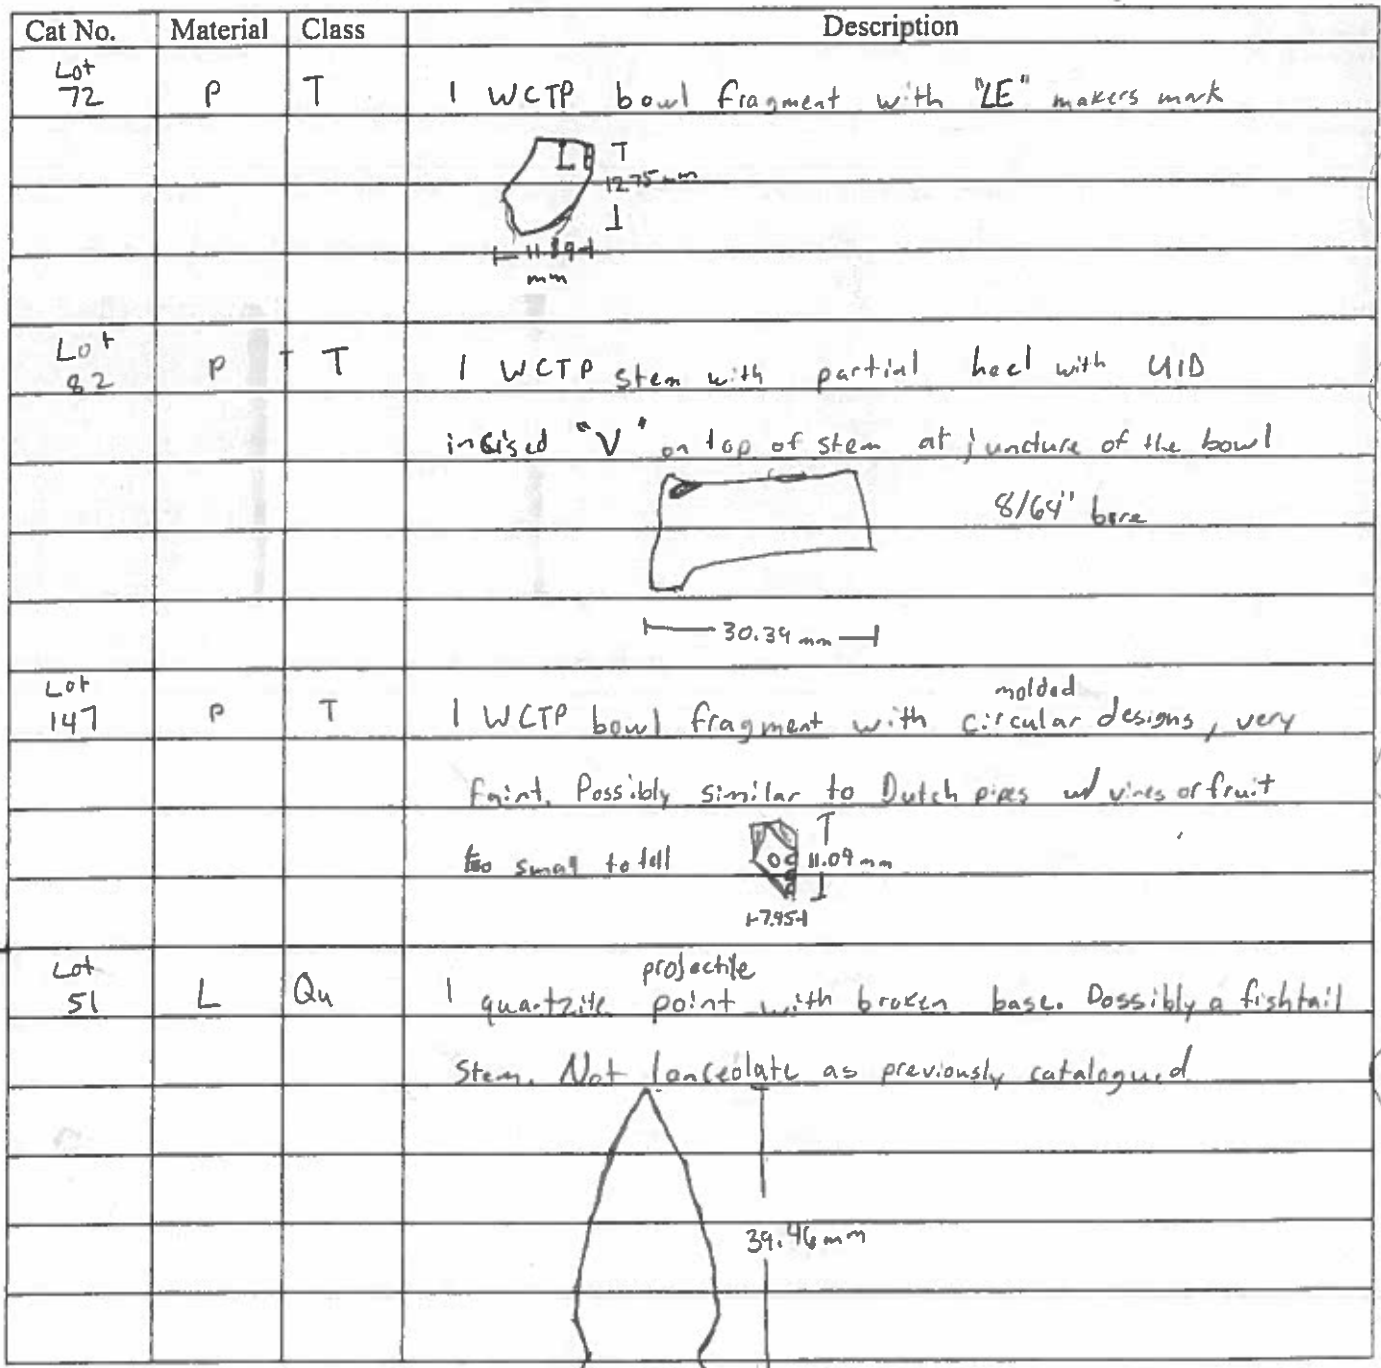 Cat No. Material Class Description
Lot
72 P T 1 WCTP bowl fragment with "LE" makers mark
L E
12.75 mm
11.89
mm
Lot
82 P T 1 WCTP stem with partial heel with UID
incised "V" on top of stem at juncture of the bowl
8/64" bore
30.39 mm
Lot
147 P T 1 WCTP bowl fragment with molded circular designs, very
faint. Possibly similar to Dutch pipes w/ vines or fruit
too small to tell
11.09 mm
7.95
Lot
51 L Qu 1 quartzite projectile point with broken base. Possibly a fishtail
stem. Not lanceolate as previously catalogued
39.46 mm